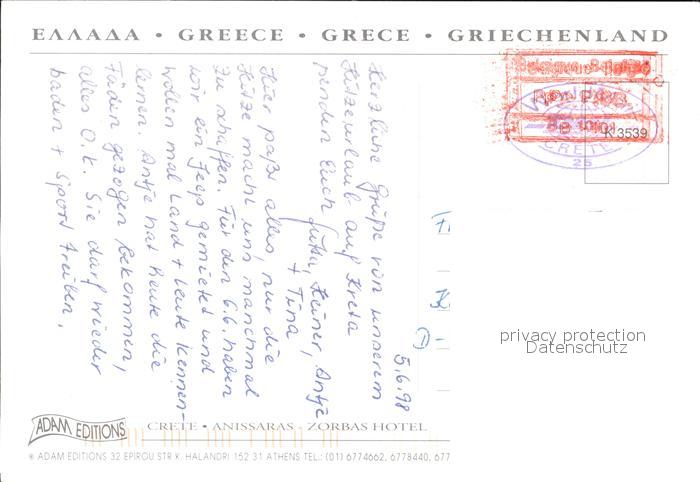 ΕΛΛΑΔΑ • GREECE • GRECE • GRIECHENLAND
WONDER
CRETE
25
K 3539
5.6.98
Herzliche Grüße von unserem
Hitzeurlaub auf Kreta
senden Euch Jutta, Heiner, Antje
+ Tina
Hier paßt alles, nur die
Hitze macht uns manchmal
zu schaffen. Für den 6.6. haben
wir ein Jeep gemietet und
wollen mal Land + Leute kennen-
lernen. Antje hat heute die
Fäden gezogen bekommen,
alles O.k. Sie darf wieder
baden + Sport treiben.
privacy protection
Datenschutz
ADAM EDITIONS
CRETE • ANISSARAS - ZORBAS HOTEL
® ADAM EDITIONS 32 EPIROU STR K. HALANDRI 152 31 ATHENS TEL.: (01) 6774662, 6778440, 677